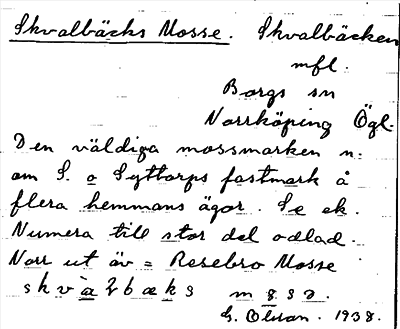 Skvalbäcks Mosse. Skvalbäcken
mfl.
Borgs sn
Norrköping Ögl.
Den väldiga mossmarken n.
om S. o Syttorps fastmark å
flera hemmans ägor. Se ek.
Numera till stor del odlad.
Norr ut äv = Resebro Mosse
skv
G. Olsson. 1938.